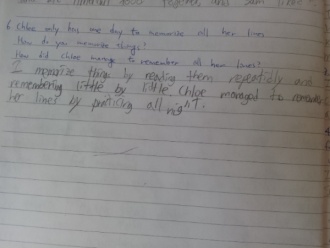 and Sam likes
6 Chloe only has one day to memorise all her lines
How do you memorise things?
How did Chloe manage to remember all her lines?
I memorize thing by reading them repeatidly and
remembering little by little. Chloe managed to remember
her lines by practicing all night.